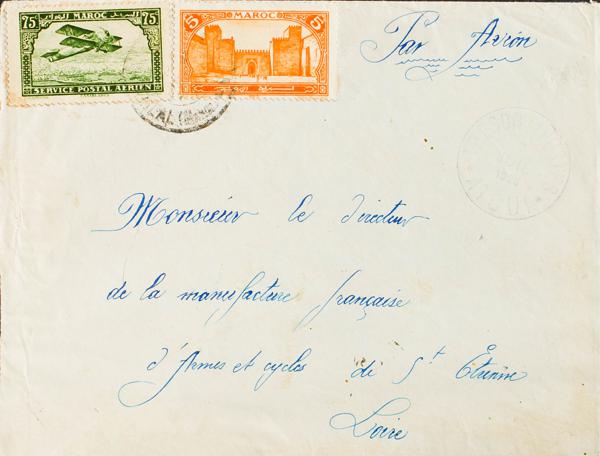 75 MAROC 75
SERVICE POSTAL AÉRIEN
5 MAROC 5
Par Avion
Monsieur le directeur
de la manufacture française
d'Armes et cycles de St Étienne
Loire